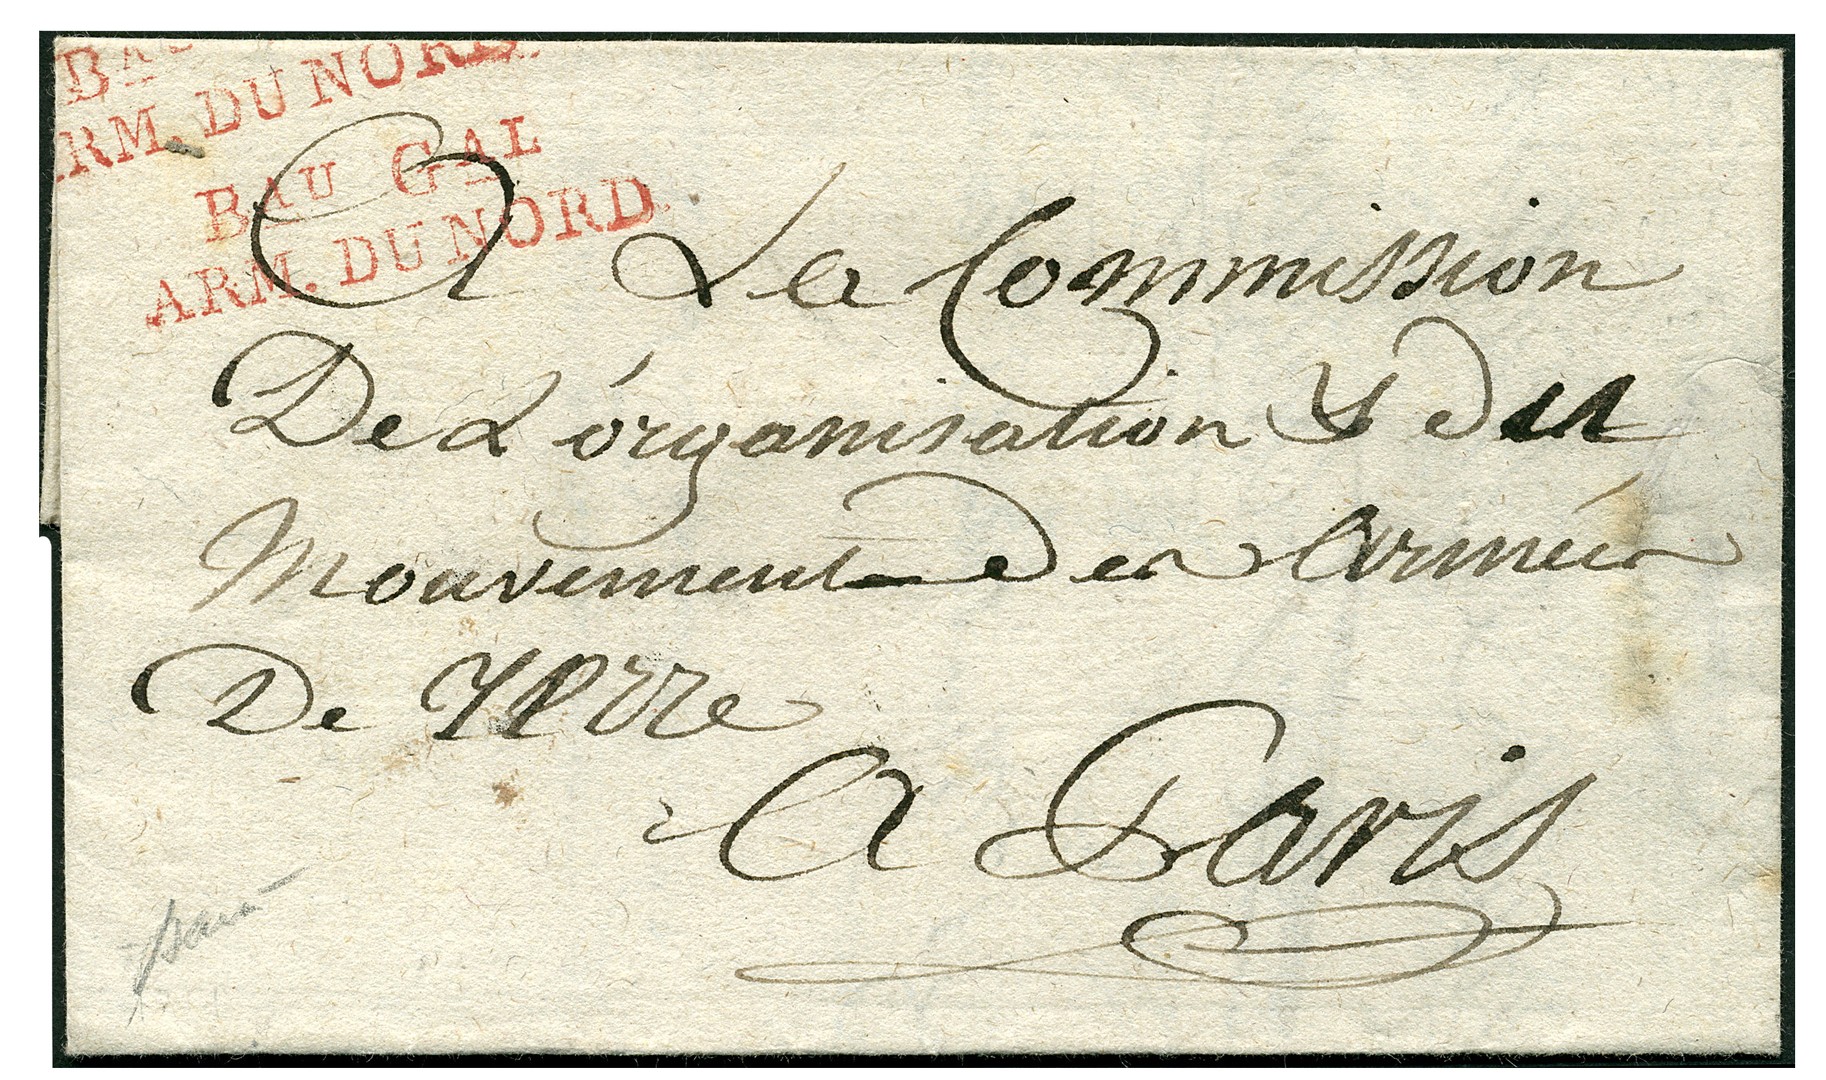 BAU
ARM. DU NORD.
BAU GAL
ARM. DU NORD.
A La Commission
De L'órganisation & du
Mouvement des Armées
De Terre
A Paris